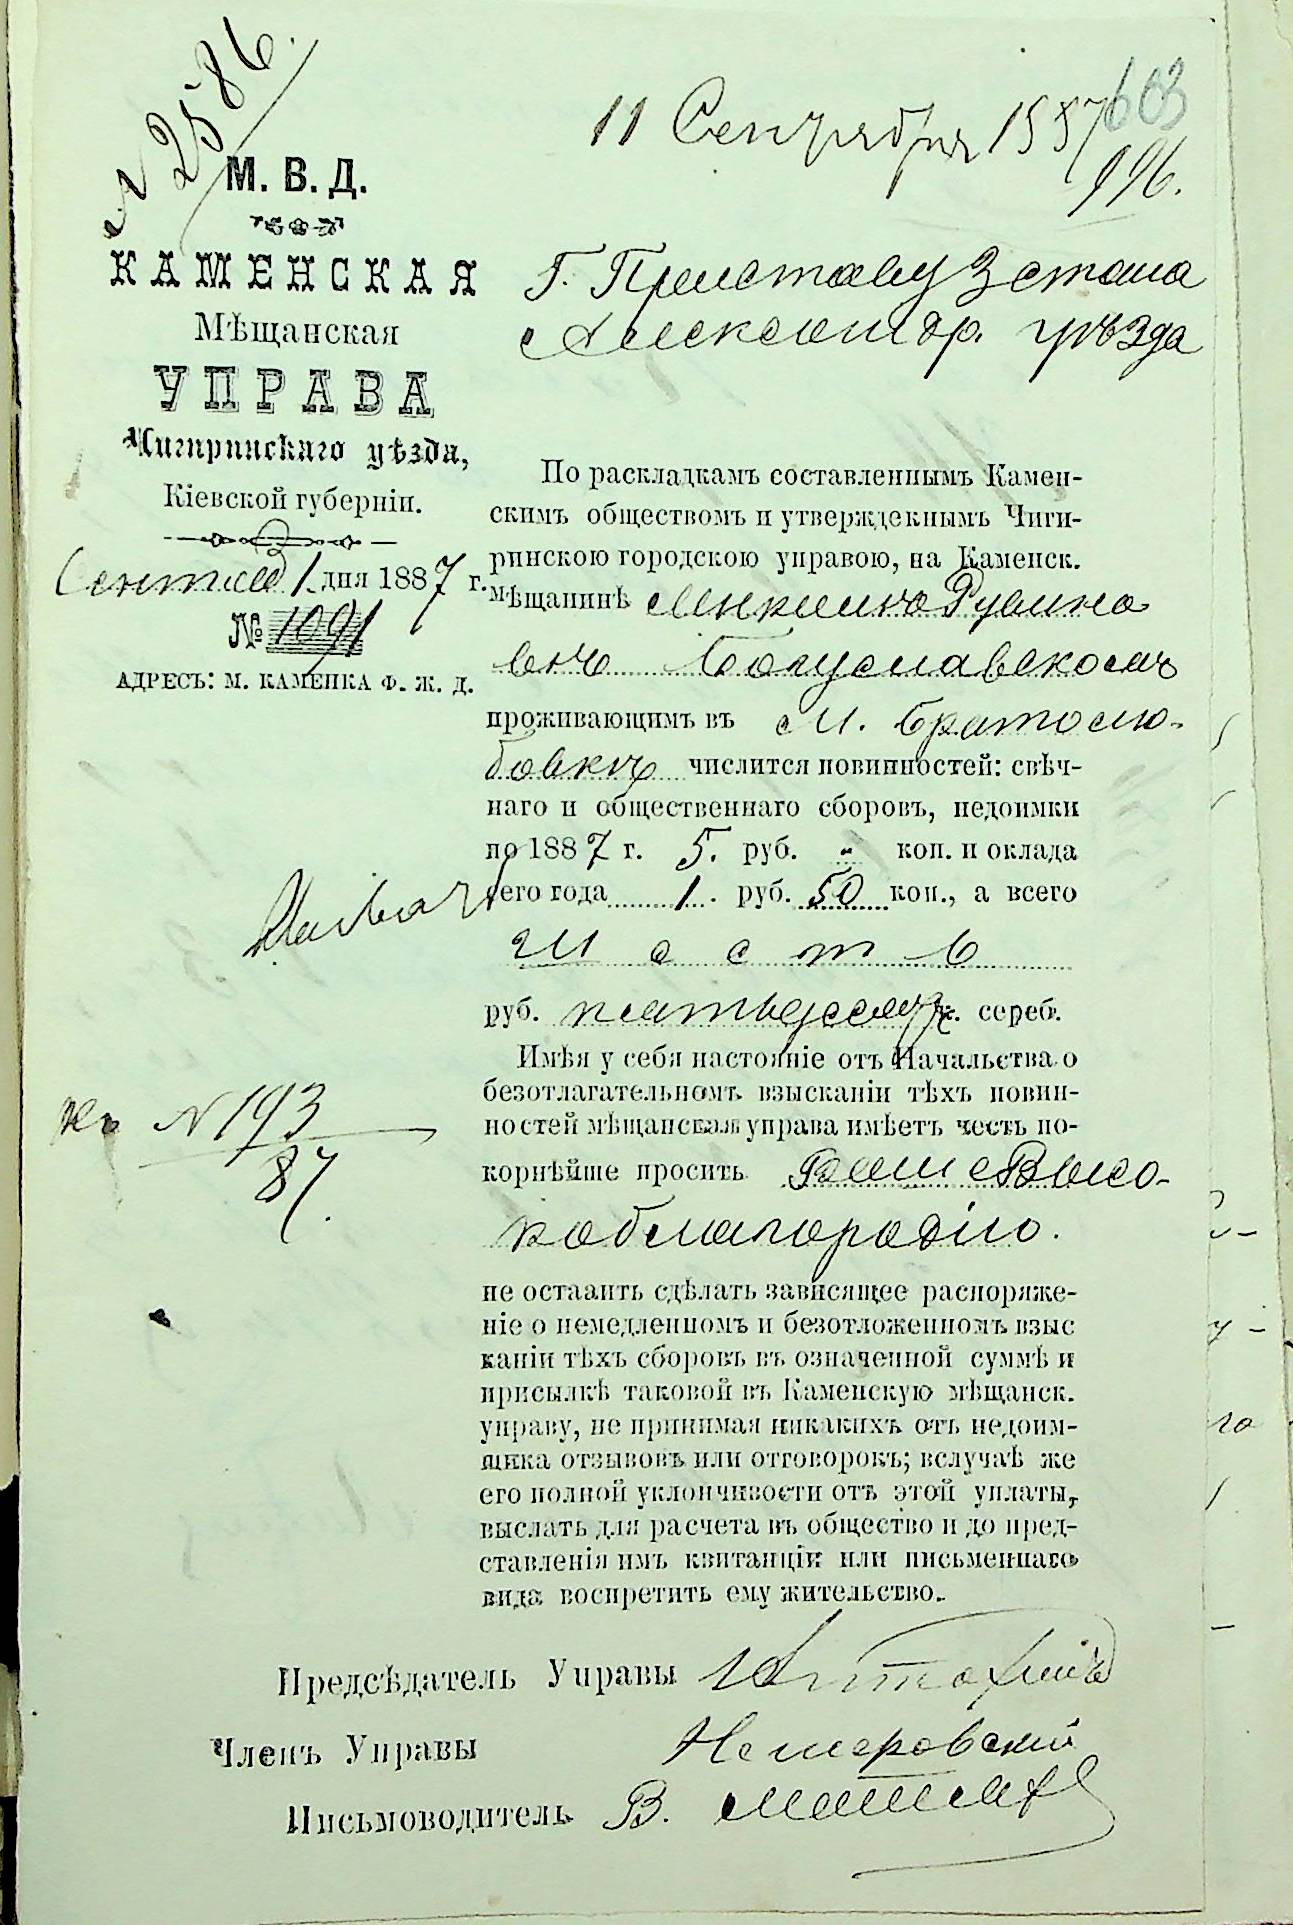 № 2586.
11 Сентября 1887
603
196.
М. В. Д.
КАМЕНСКАЯ
Мѣщанская
УПРАВА
Чигиринскаго уѣзда,
Кіевской губерніи.
1 дня 1887 г.
№ 1091
АДРЕСЪ: М. КАМЕНКА Ф. Ж. Д.
Г. Приставу 3 стана
Александр. уѣзда
По раскладкамъ составленнымъ Камен-
скимъ обществомъ и утвержденнымъ Чиги-
ринскою городскою управою, на Каменск.
мѣщанинѣ Рувино
вичѣ Богуславскомъ
проживающимъ въ м. Братолю-
бовкѣ числится повинностей: свѣч-
наго и общественнаго сборовъ, недоимки
по 1887 г. 5. руб. „ коп. и оклада
сего года 1. руб. 50 коп., а всего
Шесть
руб. пятьдесят к. сереб.
Имѣя у себя настояніе отъ Начальства о
безотлагательномъ взысканіи тѣхъ повин-
ностей мѣщанская управа имѣетъ честь по-
корнѣйше просить Ваше Высо-
коблагородіе.
не остаить сдѣлать зависящее распоряже-
ніе о немедленномъ и безотложенномъ взыс
каніи тѣхъ сборовъ въ означенной суммѣ и
присылкѣ таковой въ Каменскую мѣщанск.
управу, не принимая никакихъ отъ недоим-
щика отзывовъ или отговорокъ; вслучаѣ же
его полной уклончивости отъ этой уплаты,
выслать для расчета въ общество и до пред-
ставленія имъ квитанціи или письменнаго
вида воспретить ему жительство.
къ № 193
87.
Предсѣдатель Управы
Членъ Управы Немеровскій
Письмоводитель В.